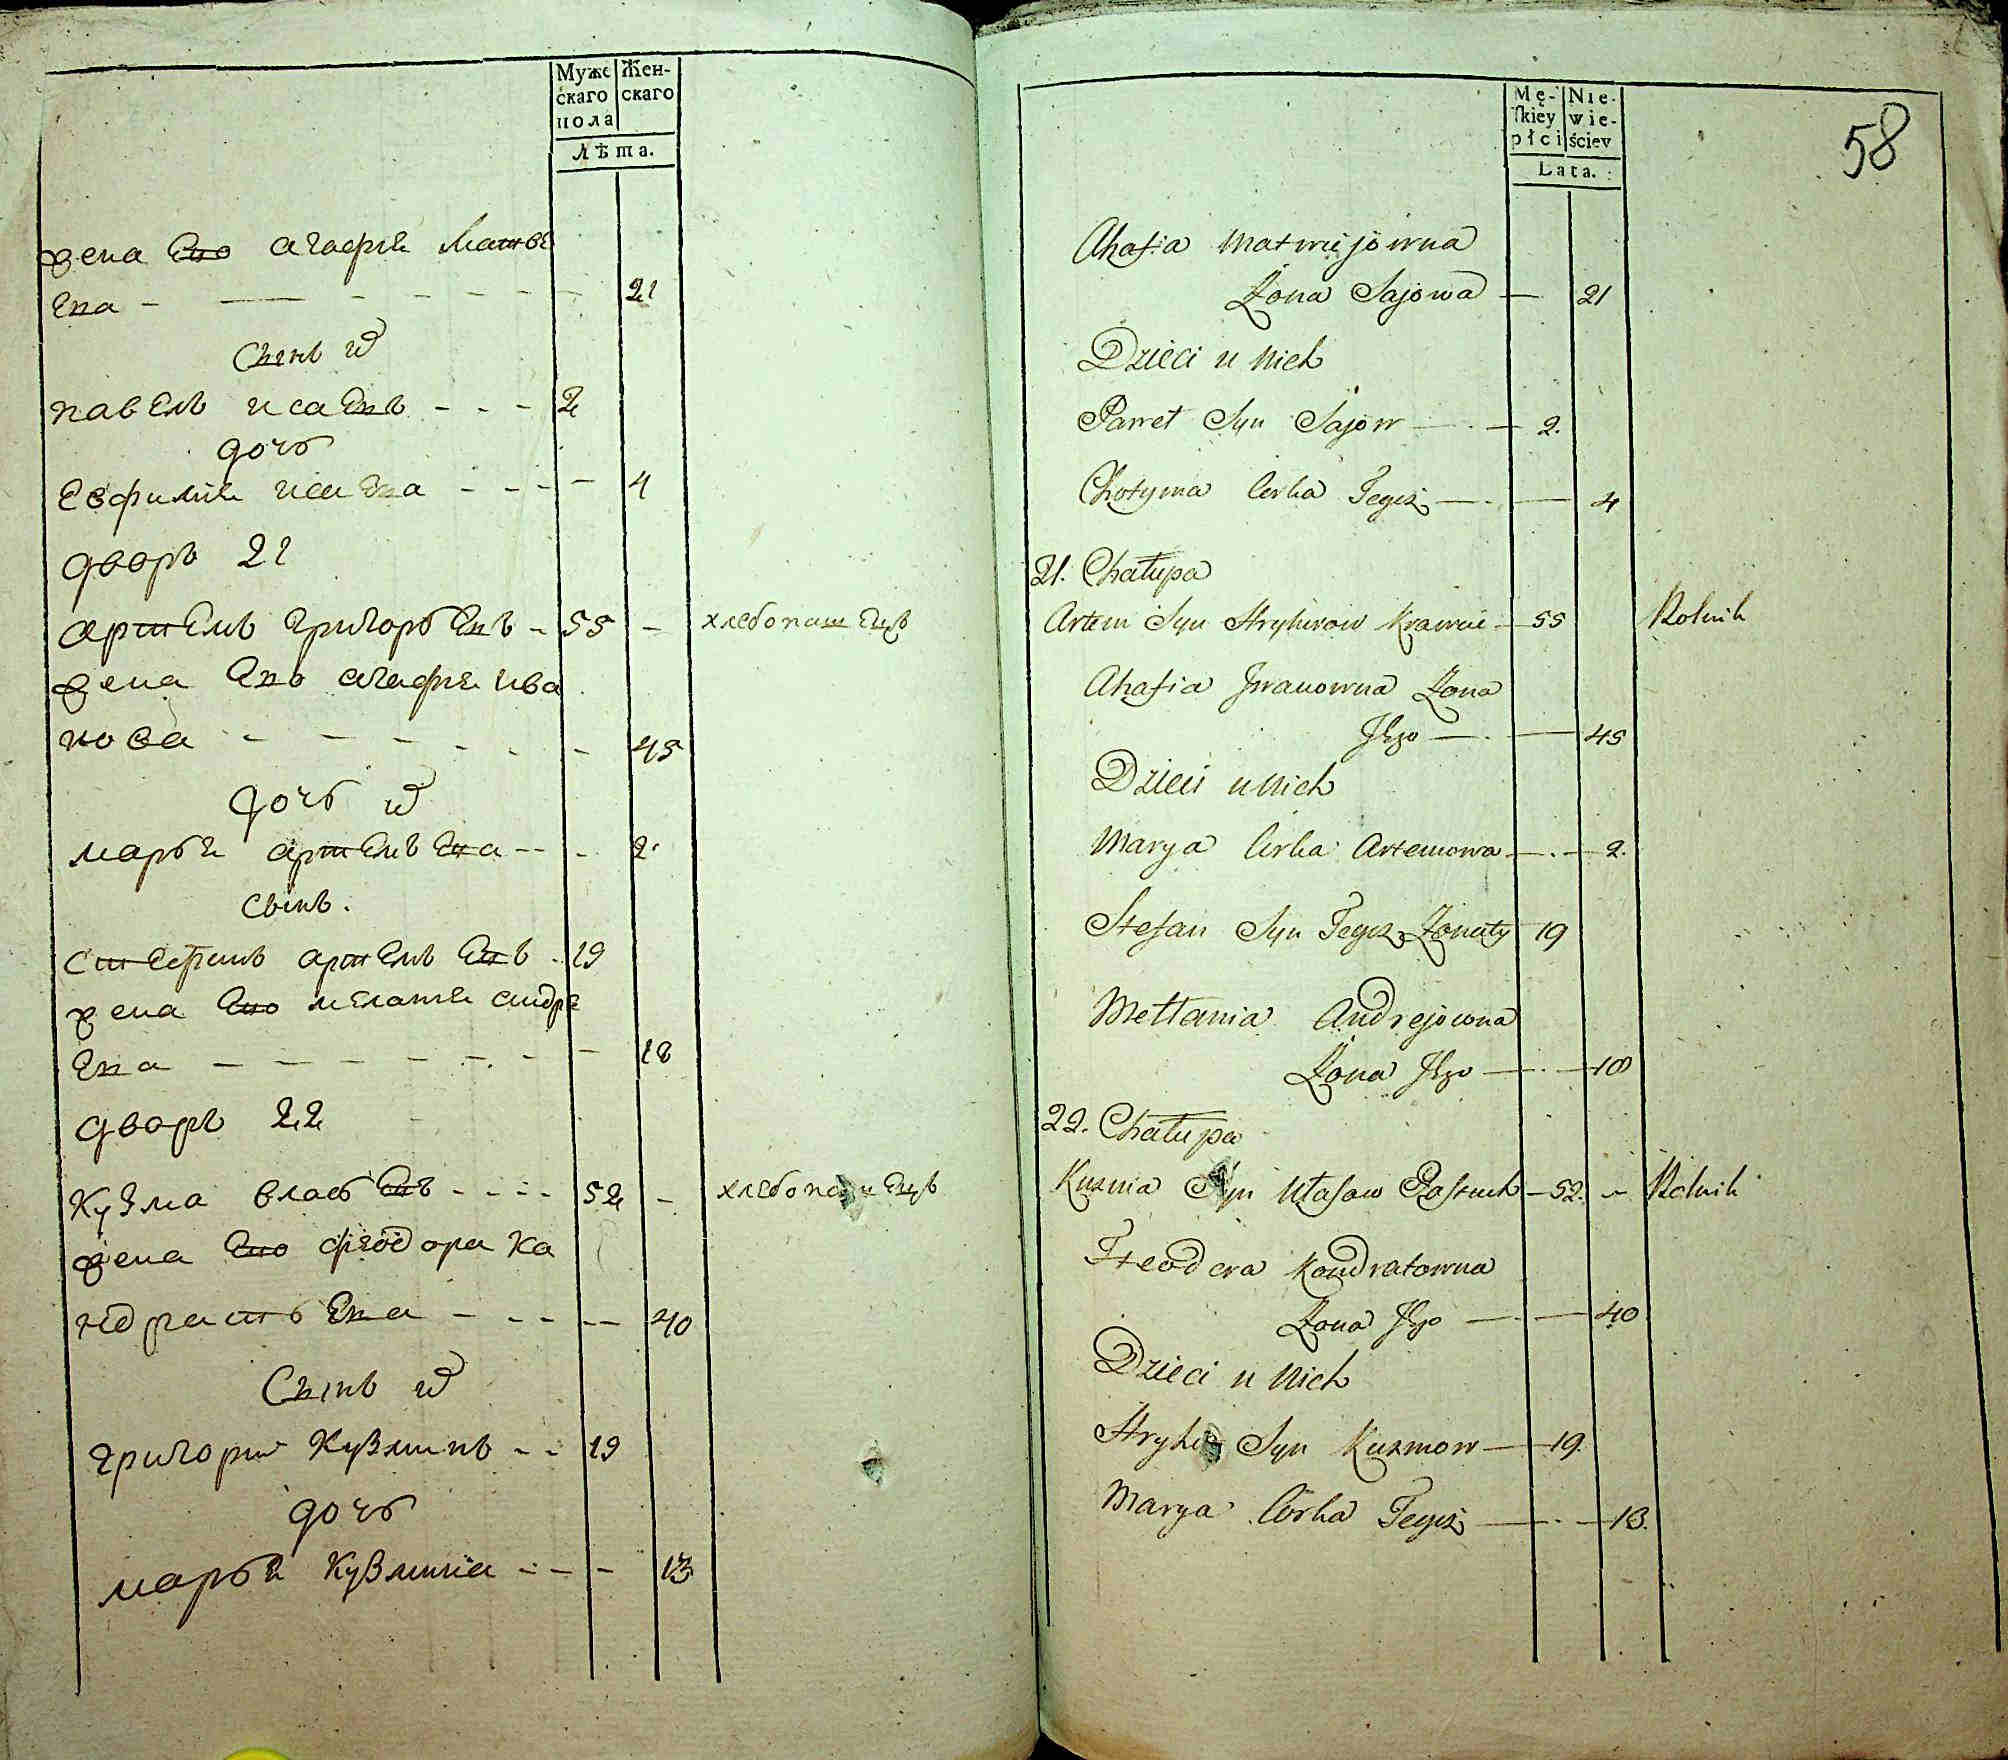 Муже
скаго
пола
Жен-
скаго
Лѣта.
жена Ево агафія Матвѣ
Ева - 21
Сынъ и҃
павелъ исаевъ - - - 2
дочь
Евфимія исаева - - - - 4
дворъ 21
артемъ григорьевъ - 55 - хлебопашецъ
жена Ево агафія ива
нова - - - - - - 45
дочь и҃
марья артемьева - - - 2
сынъ.
стефанъ артемьевъ - 19
жена Ево меланія андре
Ева - - - - - - - - 18
дворъ 22
Кузма власьевъ - - - - 52 - хлебопашецъ
жена Ево феодора ка
ндратьева - - - - - 40
Сынъ и҃
григорий Кузминъ - - 19
дочь
марья Кузмина - - - 13
Mę-
skiey
płci
Nie-
wie-
ściey
Lata.
58
Ahafia Matwiejowna
Żona Sajowa — 21
Dzieci u Nich
Paweł Syn Sajow — 2.
Chotyma Corka Tegoż — 4
21. Chałupa
Artem Syn Hryhorow Krawiec — 55 Rolnik
Ahafia Jwanowna Żona
Jego — 45
Dzieci u Nich
Marya Corka Artemowa — 2.
Stefan Syn Tegoż Żonaty 19
Mełłania Andrejowna
Żona Jego — 18
22. Chałupa
Kuzma Syn Ułasow Pastuch — 52. — Rolnik
Fteodora Kondratowna
Żona Jego — 40
Dzieci u Nich
Hryhor Syn Kuzmow — 19.
Marya Córka Tegoż — 13.